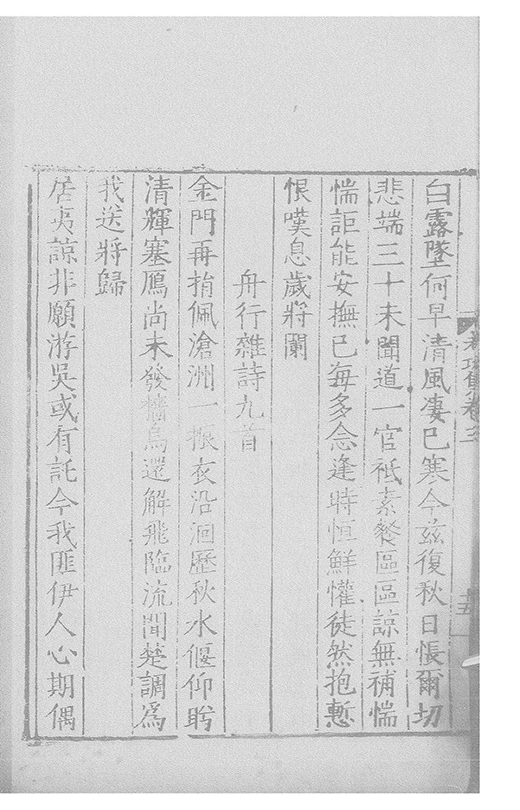 白露墜何早清風凄已寒今玆復秋日悵爾切
悲端三十未聞道一官祇素餐區區諒無補惴
惴詎能安撫已每多念逢時恒鮮懽徒然抱慙
恨嘆息歲將闌
舟行雜詩九首
金門再捐佩滄洲一振衣沿洄歷秋水偃仰眄
清輝塞鴈尚未發檣烏還解飛臨流聞楚調爲
我送將歸
居夷諒非願游吳或有託今我匪伊人心期偶